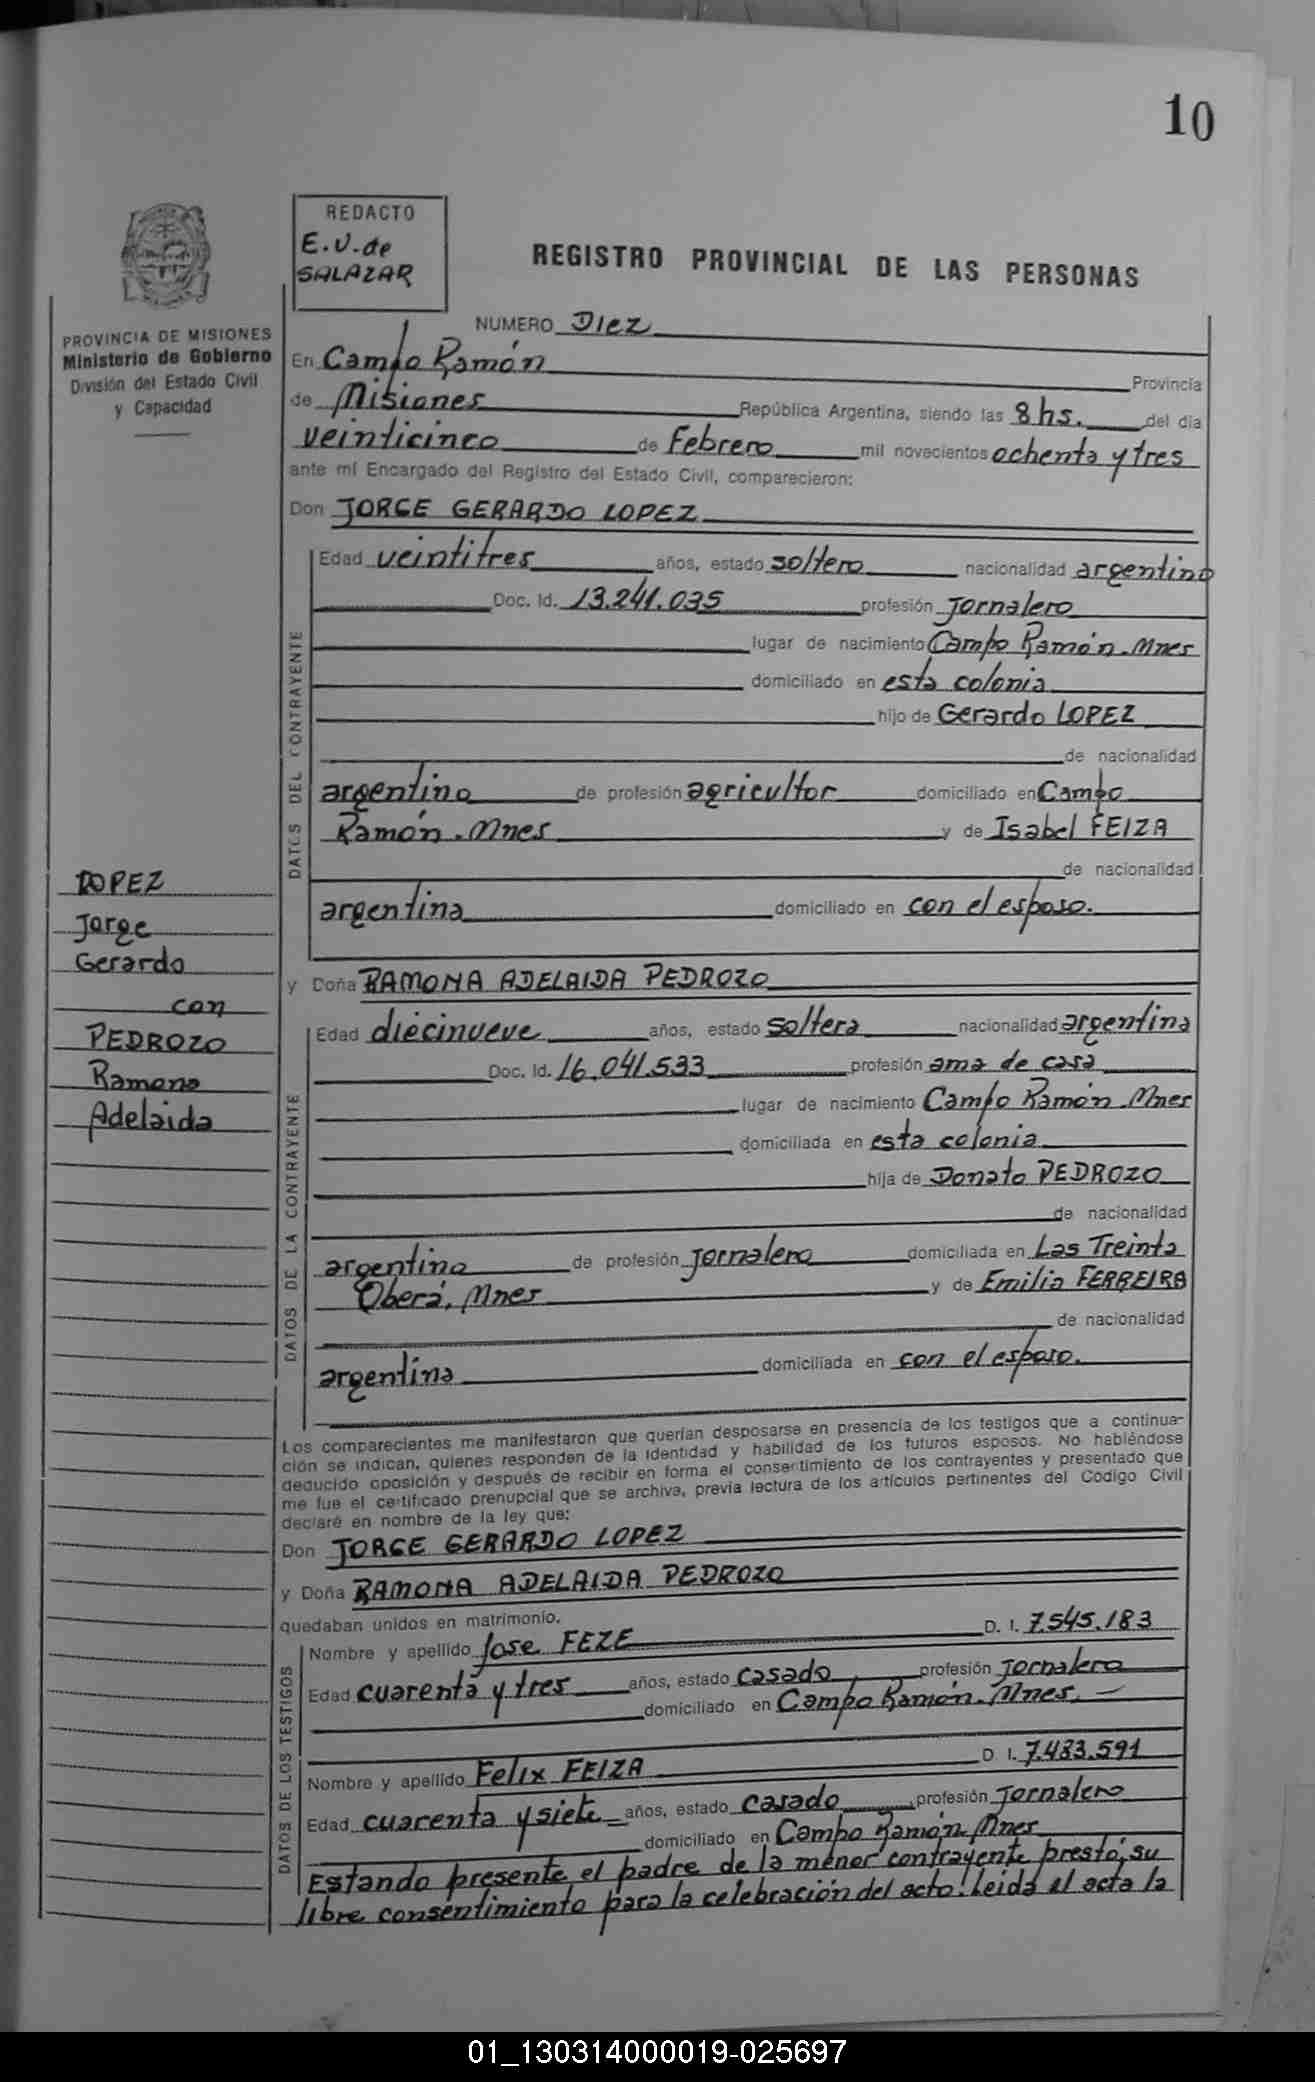 10
REDACTO
E.V. de
SALAZAR
REGISTRO PROVINCIAL DE LAS PERSONAS
PROVINCIA DE MISIONES
Ministerio de Gobierno
División del Estado Civil
y Capacidad
NUMERO Diez
En Campo Ramón Provincia
de Misiones República Argentina, siendo las 8 hs. del día
veinticinco de Febrero mil novecientos ochenta y tres
ante mí Encargado del Registro del Estado Civil, comparecieron:
Don JORGE GERARDO LOPEZ
DATOS DEL CONTRAYENTE
Edad veintitres años, estado soltero nacionalidad argentino
Doc. Id. 13.241.035 profesión Jornalero
lugar de nacimiento Campo Ramón - Mnes
domiciliado en esta colonia
hijo de Gerardo LOPEZ
de nacionalidad
argentino de profesión agricultor domiciliado en Campo
Ramón - Mnes y de Isabel FEIZA
de nacionalidad
argentina domiciliado en con el esposo.
LOPEZ
Jorge
Gerardo
con
PEDROZO
Ramona
Adelaida
y Doña RAMONA ADELAIDA PEDROZO
DATOS DE LA CONTRAYENTE
Edad diecinueve años, estado soltera nacionalidad argentina
Doc. Id. 16.041.533 profesión ama de casa
lugar de nacimiento Campo Ramón - Mnes
domiciliada en esta colonia
hija de Donato PEDROZO
de nacionalidad
argentino de profesión Jornalero domiciliada en Las Treinta
Oberá, Mnes y de Emilia FERREIRA
de nacionalidad
argentina domiciliada en con el esposo.
Los comparecientes me manifestaron que querían desposarse en presencia de los testigos que a continua-
ción se indican, quienes responden de la identidad y habilidad de los futuros esposos. No habiéndose
deducido oposición y después de recibir en forma el consentimiento de los contrayentes y presentado que
me fue el certificado prenupcial que se archiva, previa lectura de los artículos pertinentes del Codigo Civil
declaré en nombre de la ley que:
Don JORGE GERARDO LOPEZ
y Doña RAMONA ADELAIDA PEDROZO
quedaban unidos en matrimonio.
DATOS DE LOS TESTIGOS
Nombre y apellido Jose FEZE D. I. 7.545.183
Edad cuarenta y tres años, estado casado profesión Jornalero
domiciliado en Campo Ramón - Mnes.
Nombre y apellido Felix FEIZA D. I. 7.483.591
Edad cuarenta y siete años, estado casado profesión Jornalero
domiciliado en Campo Ramón Mnes
Estando presente el padre de la menor contrayente prestó, su
libre consentimiento para la celebración del acto! Leida el acta la
01_130314000019-025697